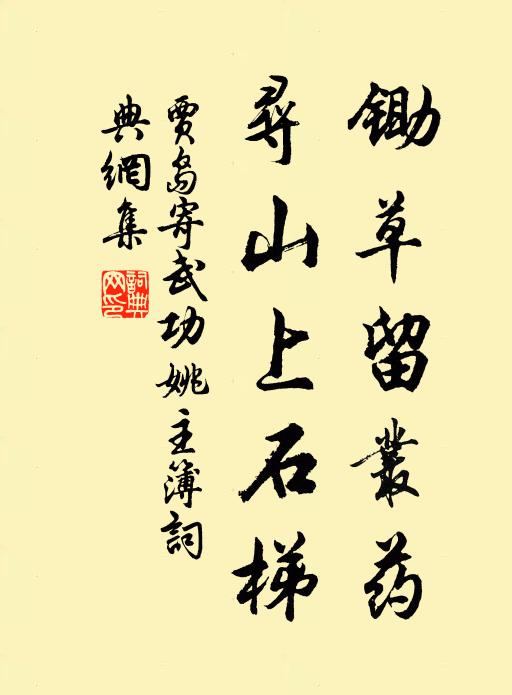 锄草留叢药
尋山上石梯
賈島寄武功姚主簿詞
典網集
詞典网印